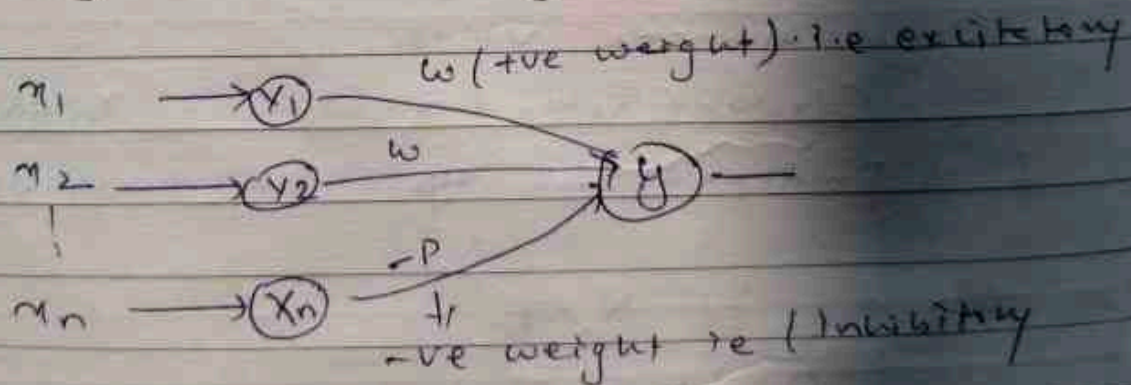 w (+ve weight) i.e excitetory
x1 X1
w
x2 X2 y
-P
xn Xn
-ve weight ie (Inhibitory